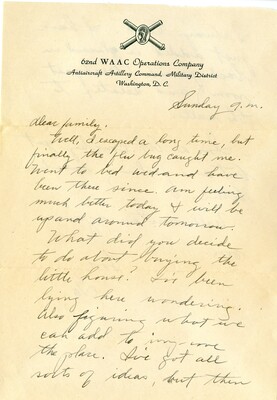 62nd WAAC Operations Company
Antiaircraft Artillery Command, Military District
Washington, D. C.
Sunday P.M.
Dear family,
Well, I escaped a long time, but
finally the flu bug caught me.
Went to bed Wed and have
been there since. Am feeling
much better today & will be
up and around tomorrow.
What did you decide
to do about buying the
little house? I've been
lying here wondering.
Also figuring what we
can add to improve
the place. I've got all
sorts of ideas, but then